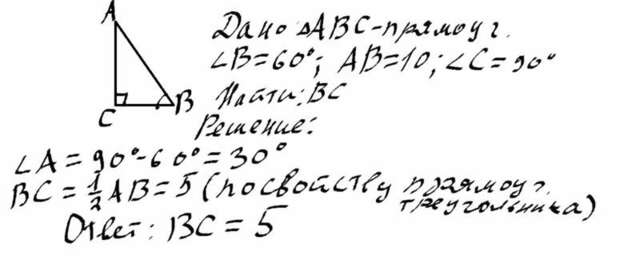 A
C
B
Дано △ABC-прямоуг.
∠B=60°; AB=10; ∠C=90°
Найти: BC
Решение:
∠A=90°-60°=30°
BC=1/2AB=5 (по свойству прямоуг.
треугольника)
Ответ: BC=5